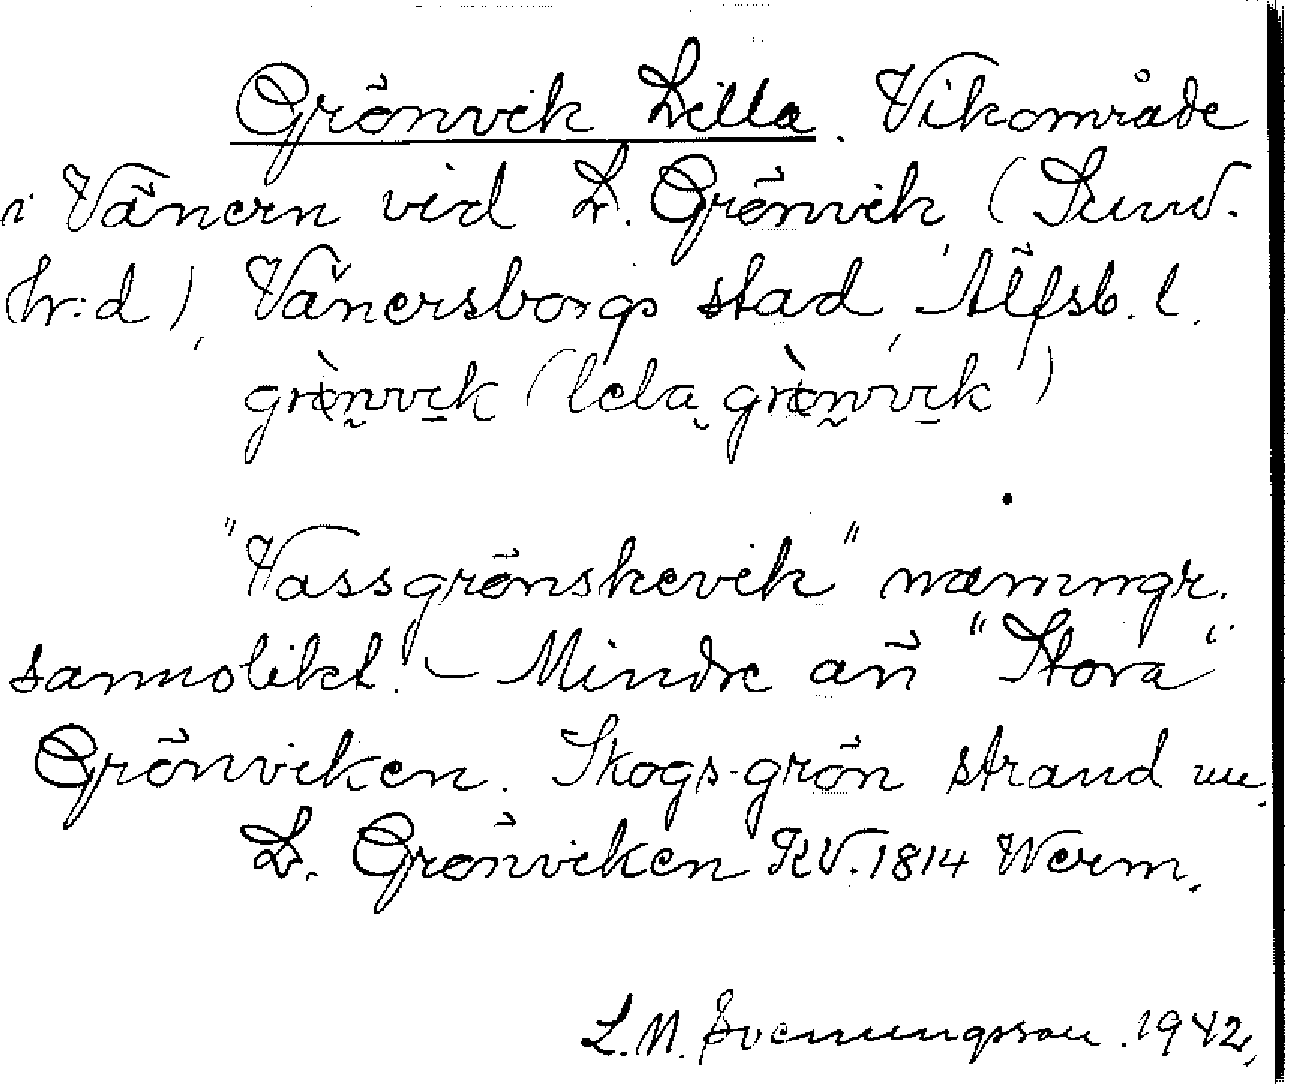 Grönvik Lilla. Vikområde
i Vänern vid L. Grönvik (Sund.
hr:d), Vänersborgs stad, Älfsb. l.
grènvik (lela grènvik)
"Vassgrönskevik" næmingr.
sannolikt. – Mindre än "Stora"
Grönviken. Skogs-grön strand
L. Grönviken KV. 1814 Werm.
L.M. Svenungsson. 1942.